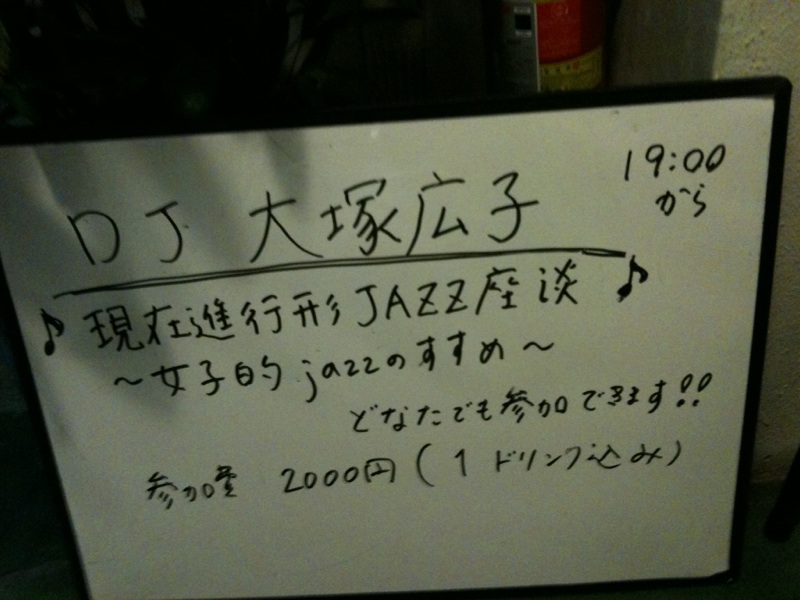 DJ 大塚広子
19:00
から
♪ 現在進行形JAZZ座談 ♪
～女子的jazzのすすめ～
どなたでも参加できます!!
参加費 2000円(1ドリンク込み)